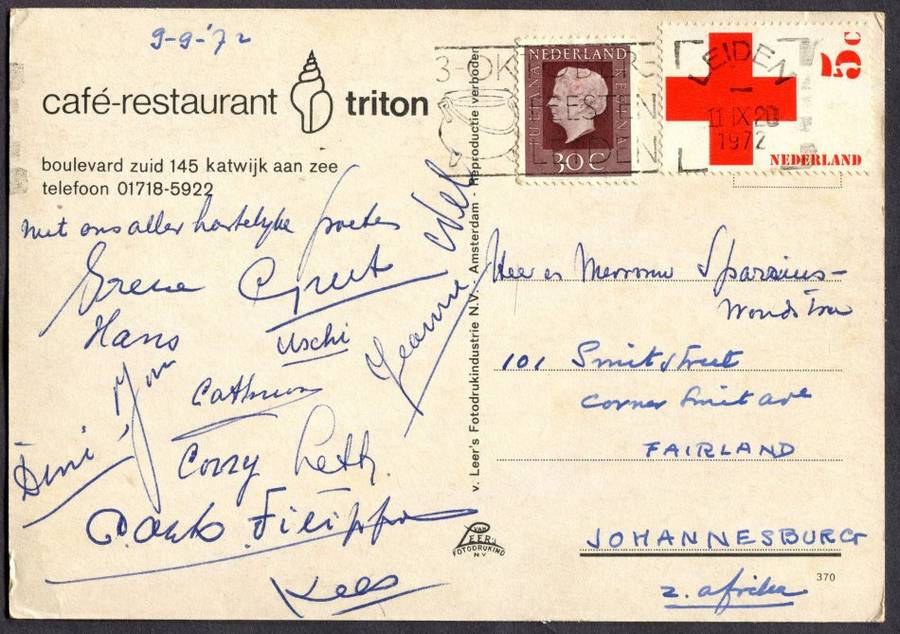 9-9-'72
café-restaurant triton
boulevard zuid 145 katwijk aan zee
telefoon 01718-5922
met ons aller hartelijke groeten
Irene Greet
Hans Uschi
Jeanne
Dini
Corry
Filippo
Kees
v. Leer's Fotodrukindustrie N.V. - Amsterdam - Reproductie verboden
VAN
LEER'S
FOTODRUKIND
N.V.
NEDERLAND
30 C
5c
NEDERLAND
3-OKTOBER
FEESTEN
LEIDEN
LEIDEN
11 IX 20
1972
Heer en Mevrouw
101 Smit street
corner Smit ave
FAIRLAND
JOHANNESBURG
Z. afrika
370